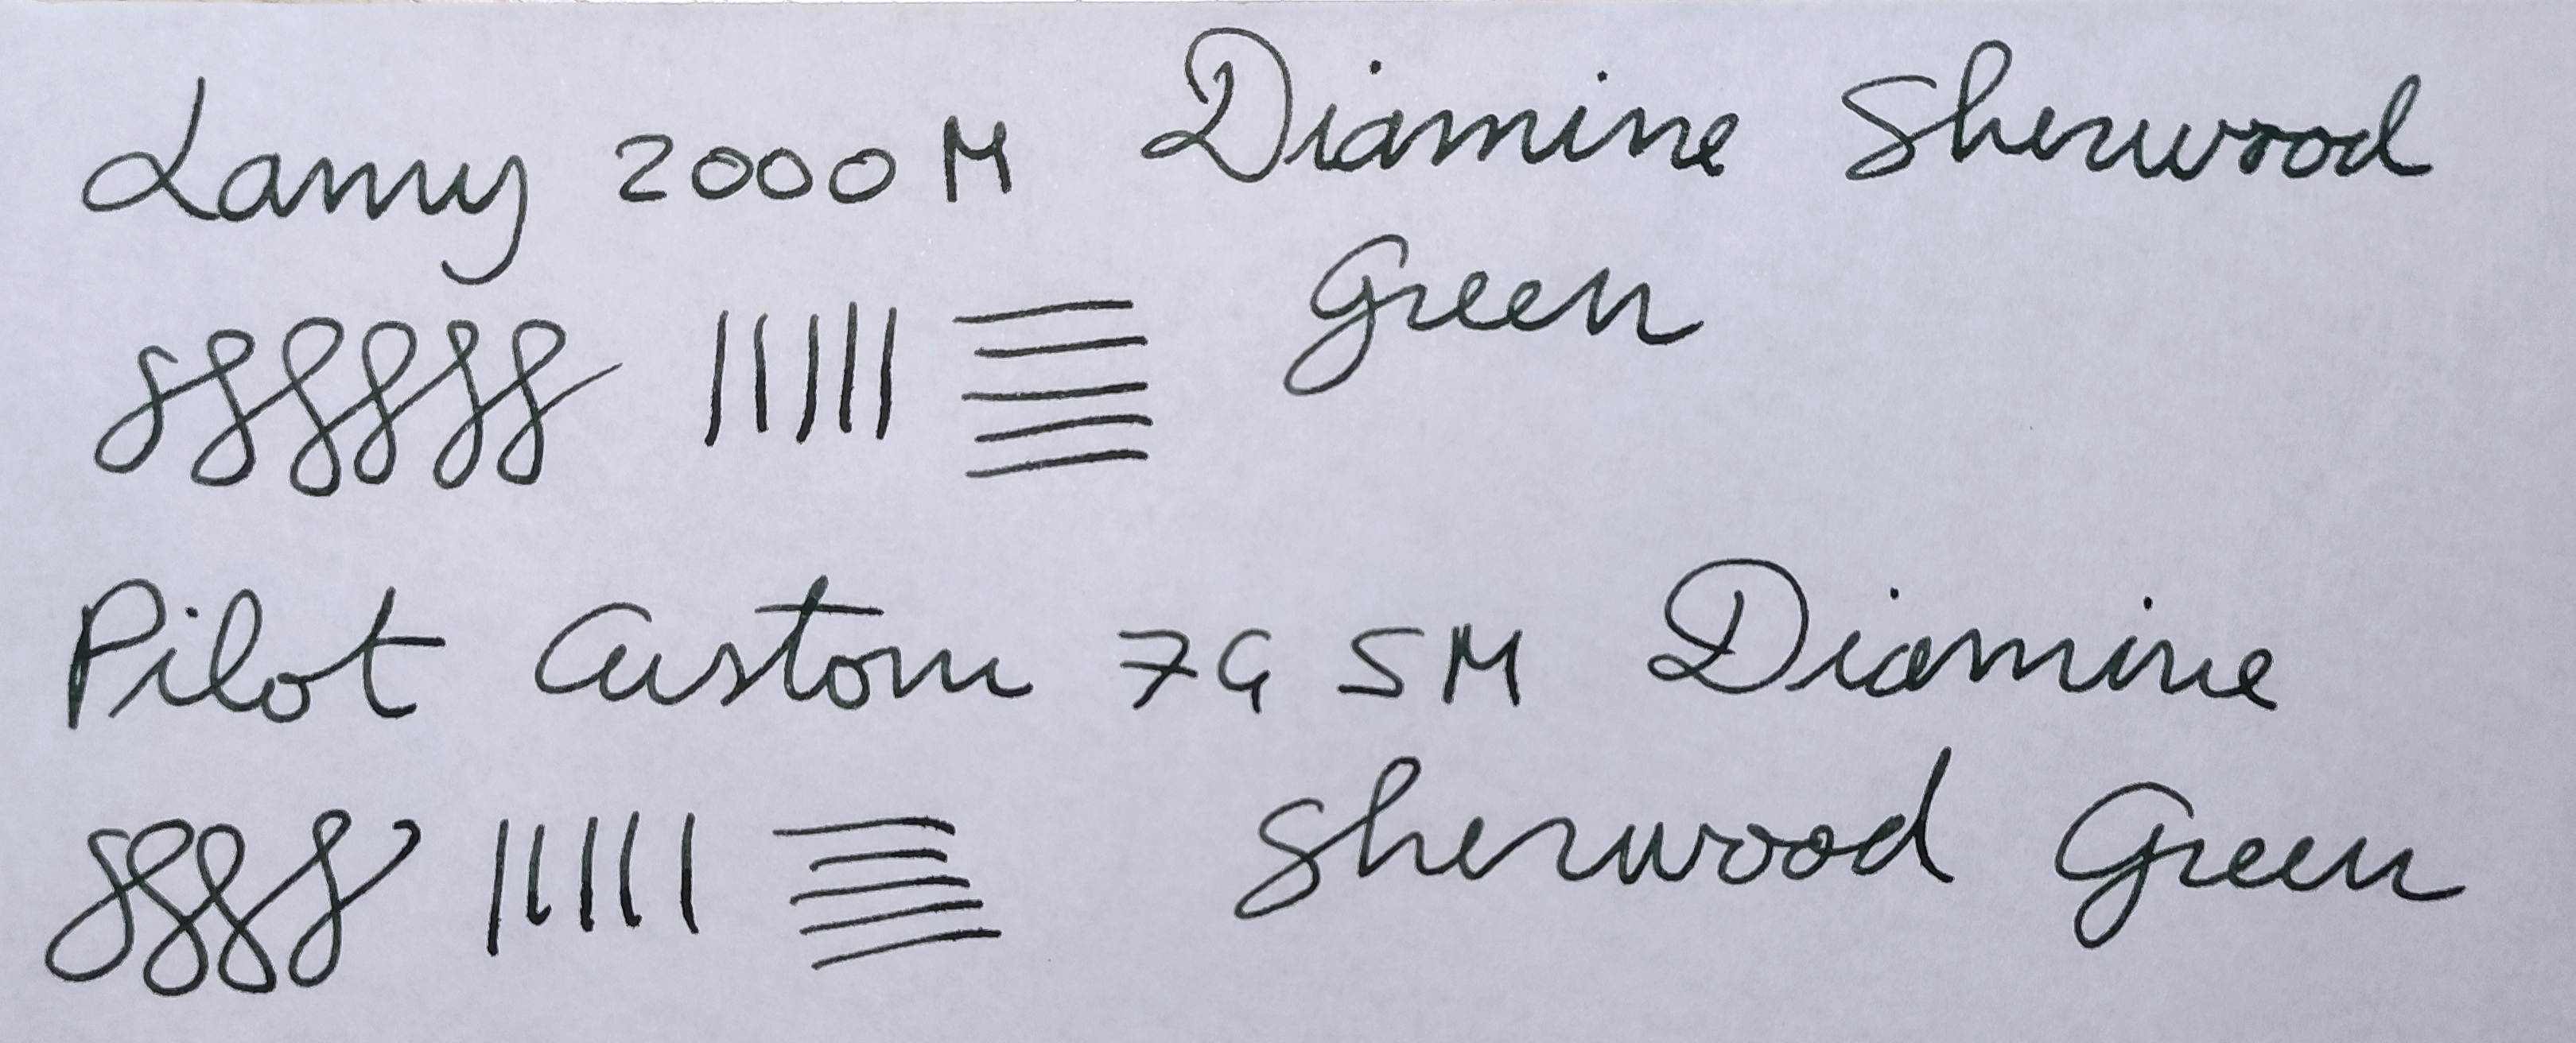 Lamy 2000 M Diamine Sherwood
Green
Pilot Custom 74 SM Diamine
Sherwood Green